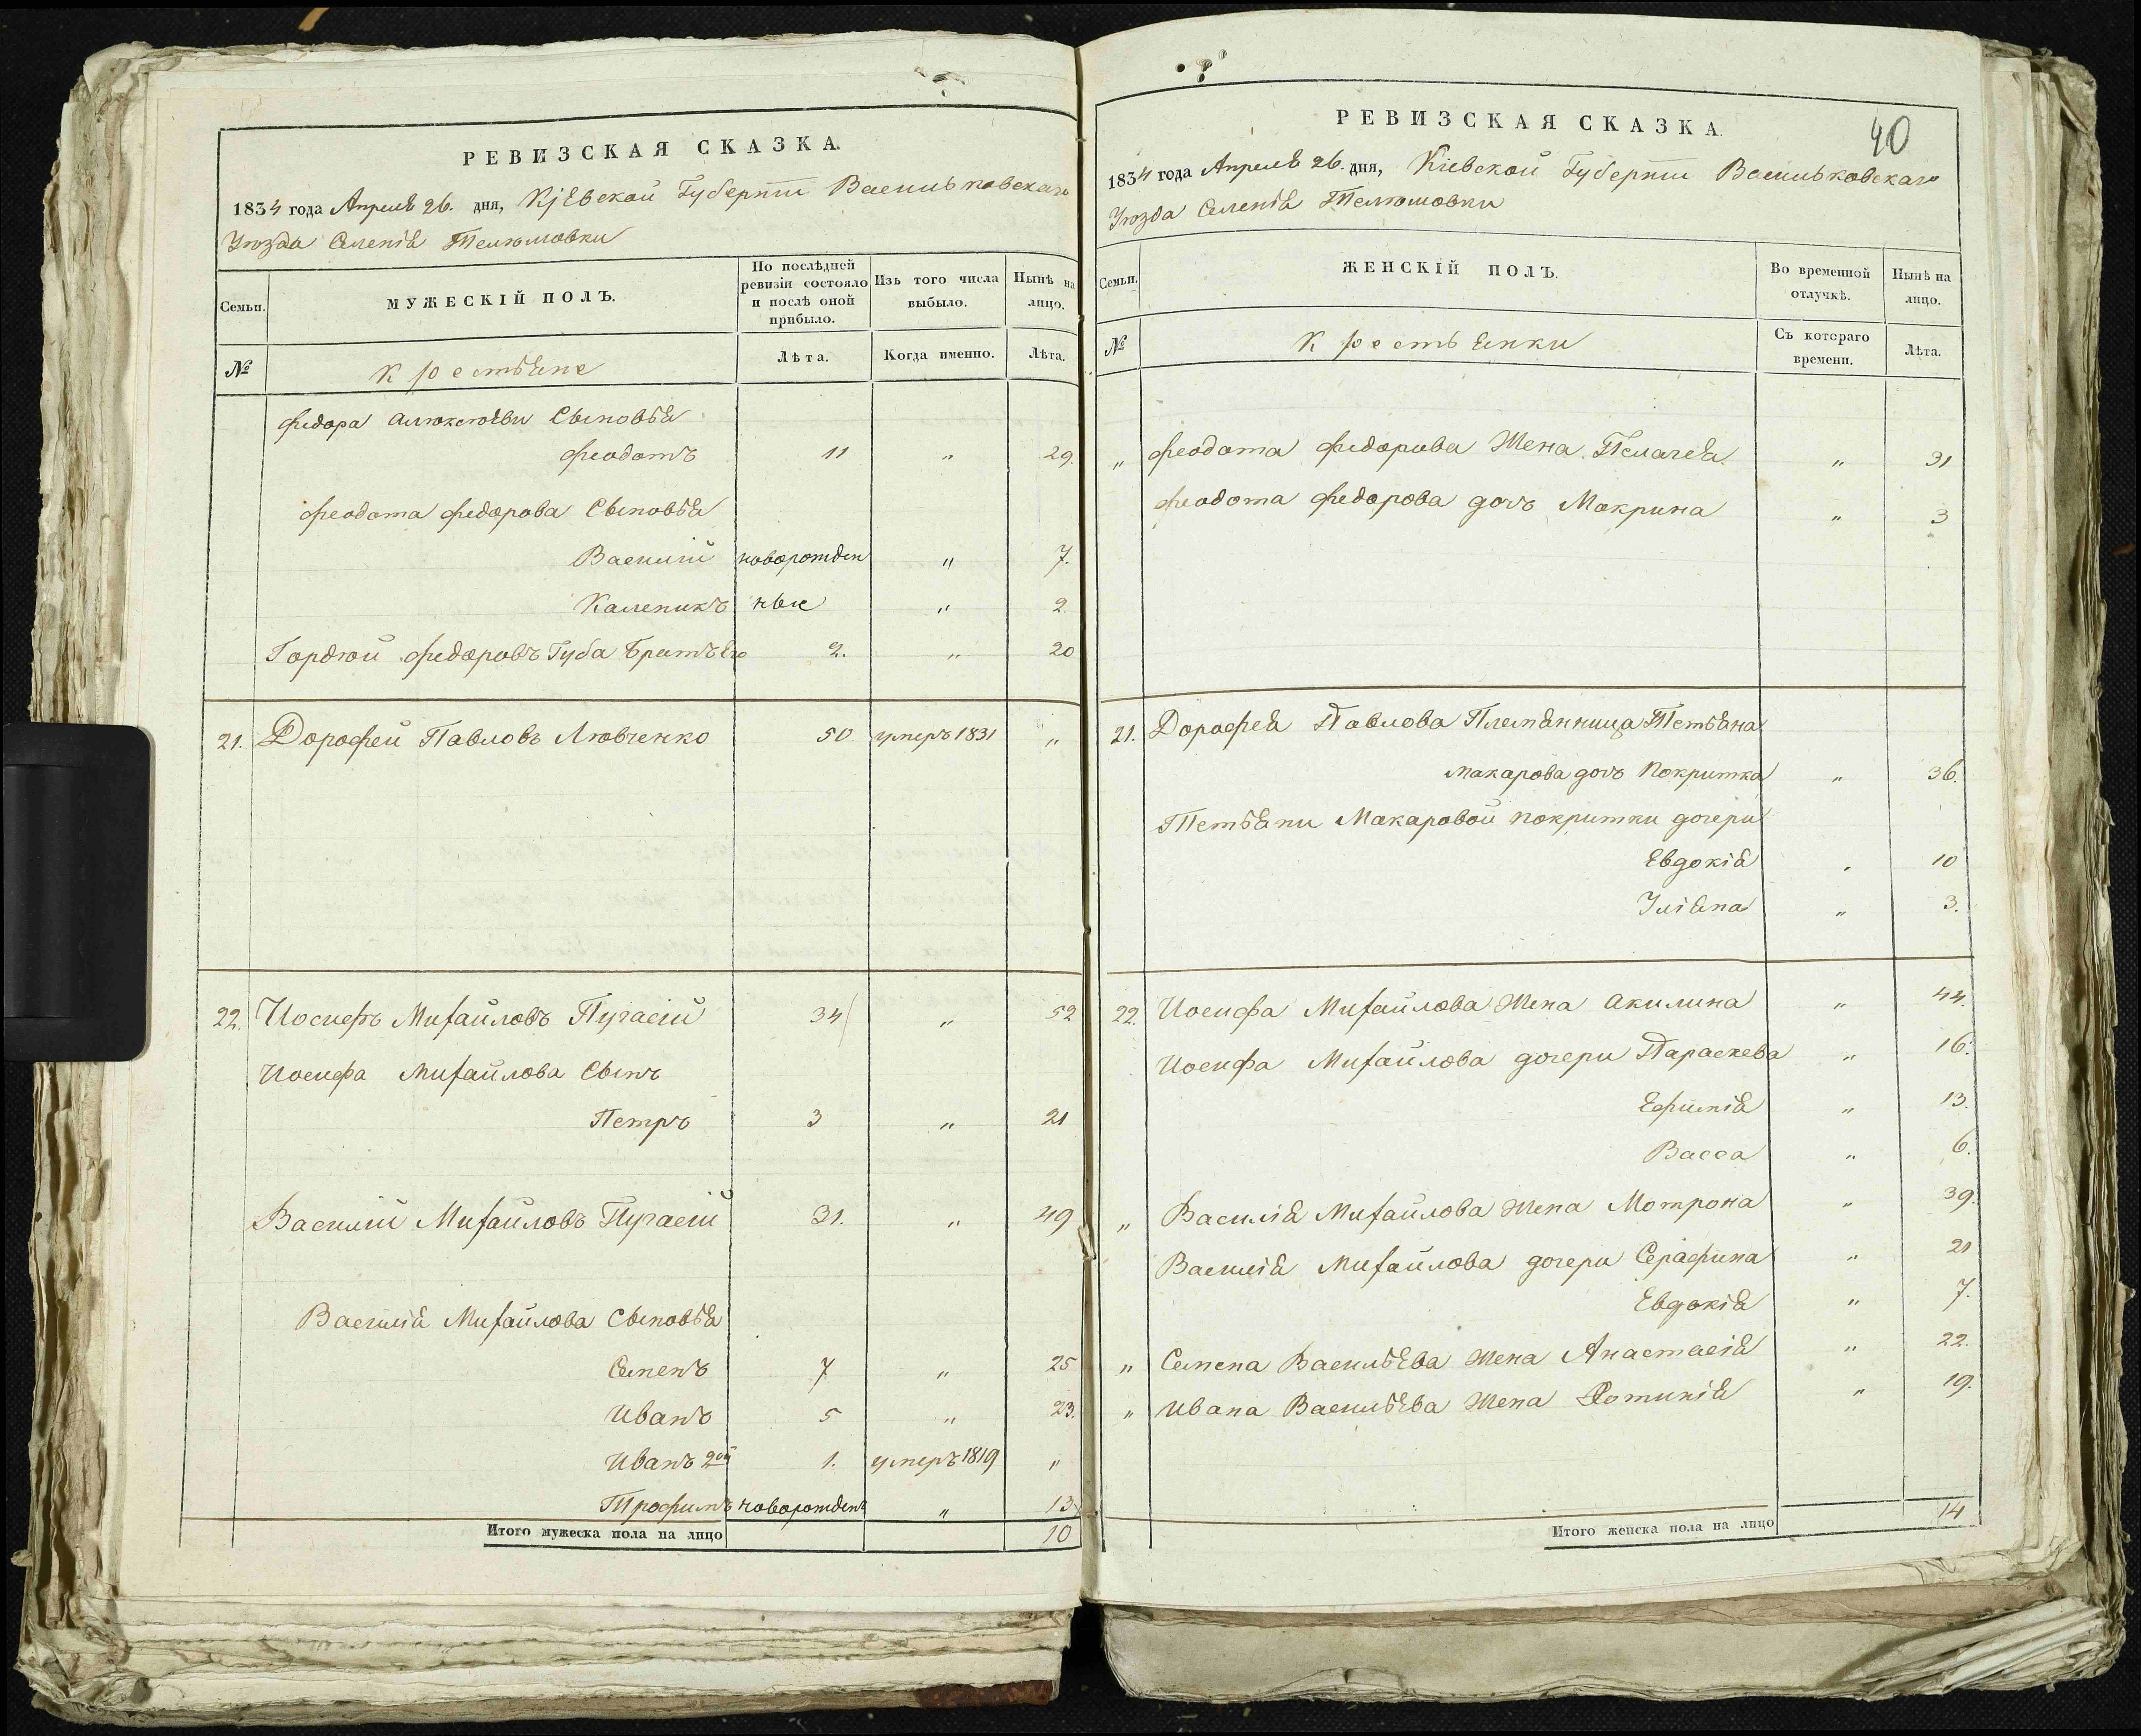 РЕВИЗСКАЯ СКАЗКА.
1834 года Апреля 26. дня, Кіевской Губерніи Васильковскаго
Уѣзда Селенія Телюшовки
Семьи.
МУЖЕСКІЙ ПОЛЪ.
По послѣдней ревизіи состояло и послѣ оной прибыло.
Изъ того числа выбыло.
Нынѣ на лицо.
№
Крестьяне
Лѣта.
Когда именно.
Лѣта.
Федора Алѣксѣева Сыновья
Феодотъ 11 " 29.
Феодота Федорова Сыновья
Василій новорожден " 7.
Каленикъ ные " 2.
Гордѣй Федоровъ Губа Братъ Его 2. " 20
21. Дорофей Павловъ Лювченко 50 умеръ 1831 "
22. Иосифъ Михайловъ Пугасій 34 " 52
Иосифа Михайлова Сынъ
Петръ 3 " 21
Василій Михайловъ Пугасій 31. " 49
Василія Михайлова Сыновья
Семенъ 7 " 25
Иванъ 5 " 23.
Иванъ 2ой 1. умеръ 1819 "
Трофимъ новорожденъ " 13
Итого мужеска пола на лицо 10
40
РЕВИЗСКАЯ СКАЗКА.
1834 года Апреля 26. дня, Кіевской Губерніи Васильковскаго
Уѣзда Селенія Телюшовки
Семьи.
ЖЕНСКІЙ ПОЛЪ.
Во временной отлучкѣ.
Нынѣ на лицо.
№
Крестьянки
Съ котораго времени.
Лѣта.
" Феодота Федорова Жена Пелагея " 31
Феодота Федорова дочъ Мокрина " 3
21. Дорофея Павлова Племянница Тетьяна
Макарова дочъ Покритка " 36.
Тетьяни Макаровой покритки дочери
Евдокія " 10
Уліяна " 3.
22. Иосифа Михайлова Жена Акилина " 44.
Иосифа Михайлова дочери Параскева " 16.
Ефимія " 13.
Васса " 6.
" Василія Михайлова Жена Мотрона " 39.
Василія Михайлова дочери Серафина " 21
Евдокія " 7.
" Семена Васильева Жена Анастасія " 22.
" Ивана Васильева Жена Фотинія " 19.
Итого женска пола на лицо 14